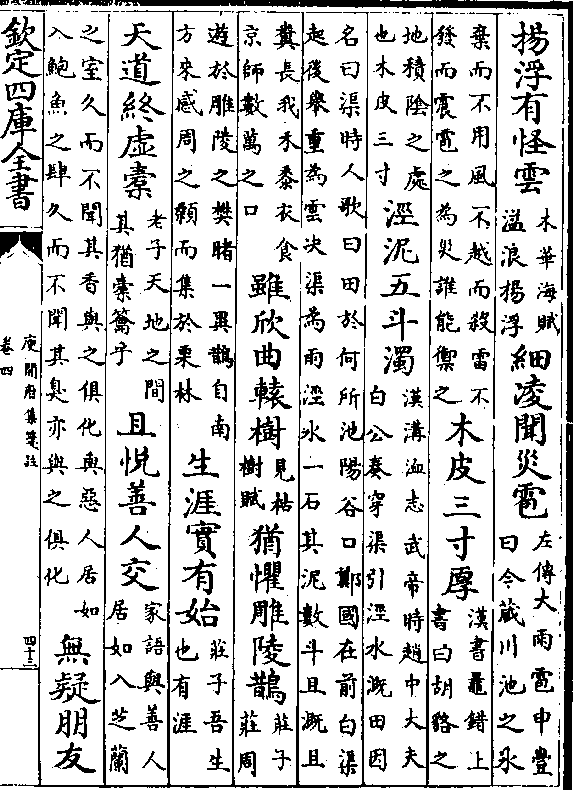 揚浮有怪雲
木華海賦
溢浪揚浮
細凌聞災雹
左傳大雨雹申豐
曰今蔵川池之氷
棄而不用風不越而殺雷不
發而震雹之為災誰能禦之
木皮三寸厚
漢書鼂錯上
書曰胡貉之
地積陰之處
也木皮三寸
涇泥五斗濁
漢溝洫志武帝時趙中大夫
白公奏穿渠引涇水溉田因
名曰渠時人歌曰田於何所池陽谷口鄭國在前白渠
起後舉重為雲决渠為雨涇水一石其泥數斗且溉且
糞長我禾黍衣食
京師數萬之口
雖欣曲轅樹
見枯
樹賦
猶懼雕陵鵲
莊子
莊周
遊於雕陵之樊睹一異鵲自南
方來感周之顙而集於栗林
生涯實有始
莊子吾生
也有涯
天道終虛橐
老子天地之間
其猶橐籥乎
且悅善人交
家語與善人
居如入芝蘭
之室久而不聞其香與之俱化與惡人居如
入鮑魚之肆久而不聞其臭亦與之俱化
無疑朋友
欽定四庫全書
庾開府集箋註
卷四
四十三